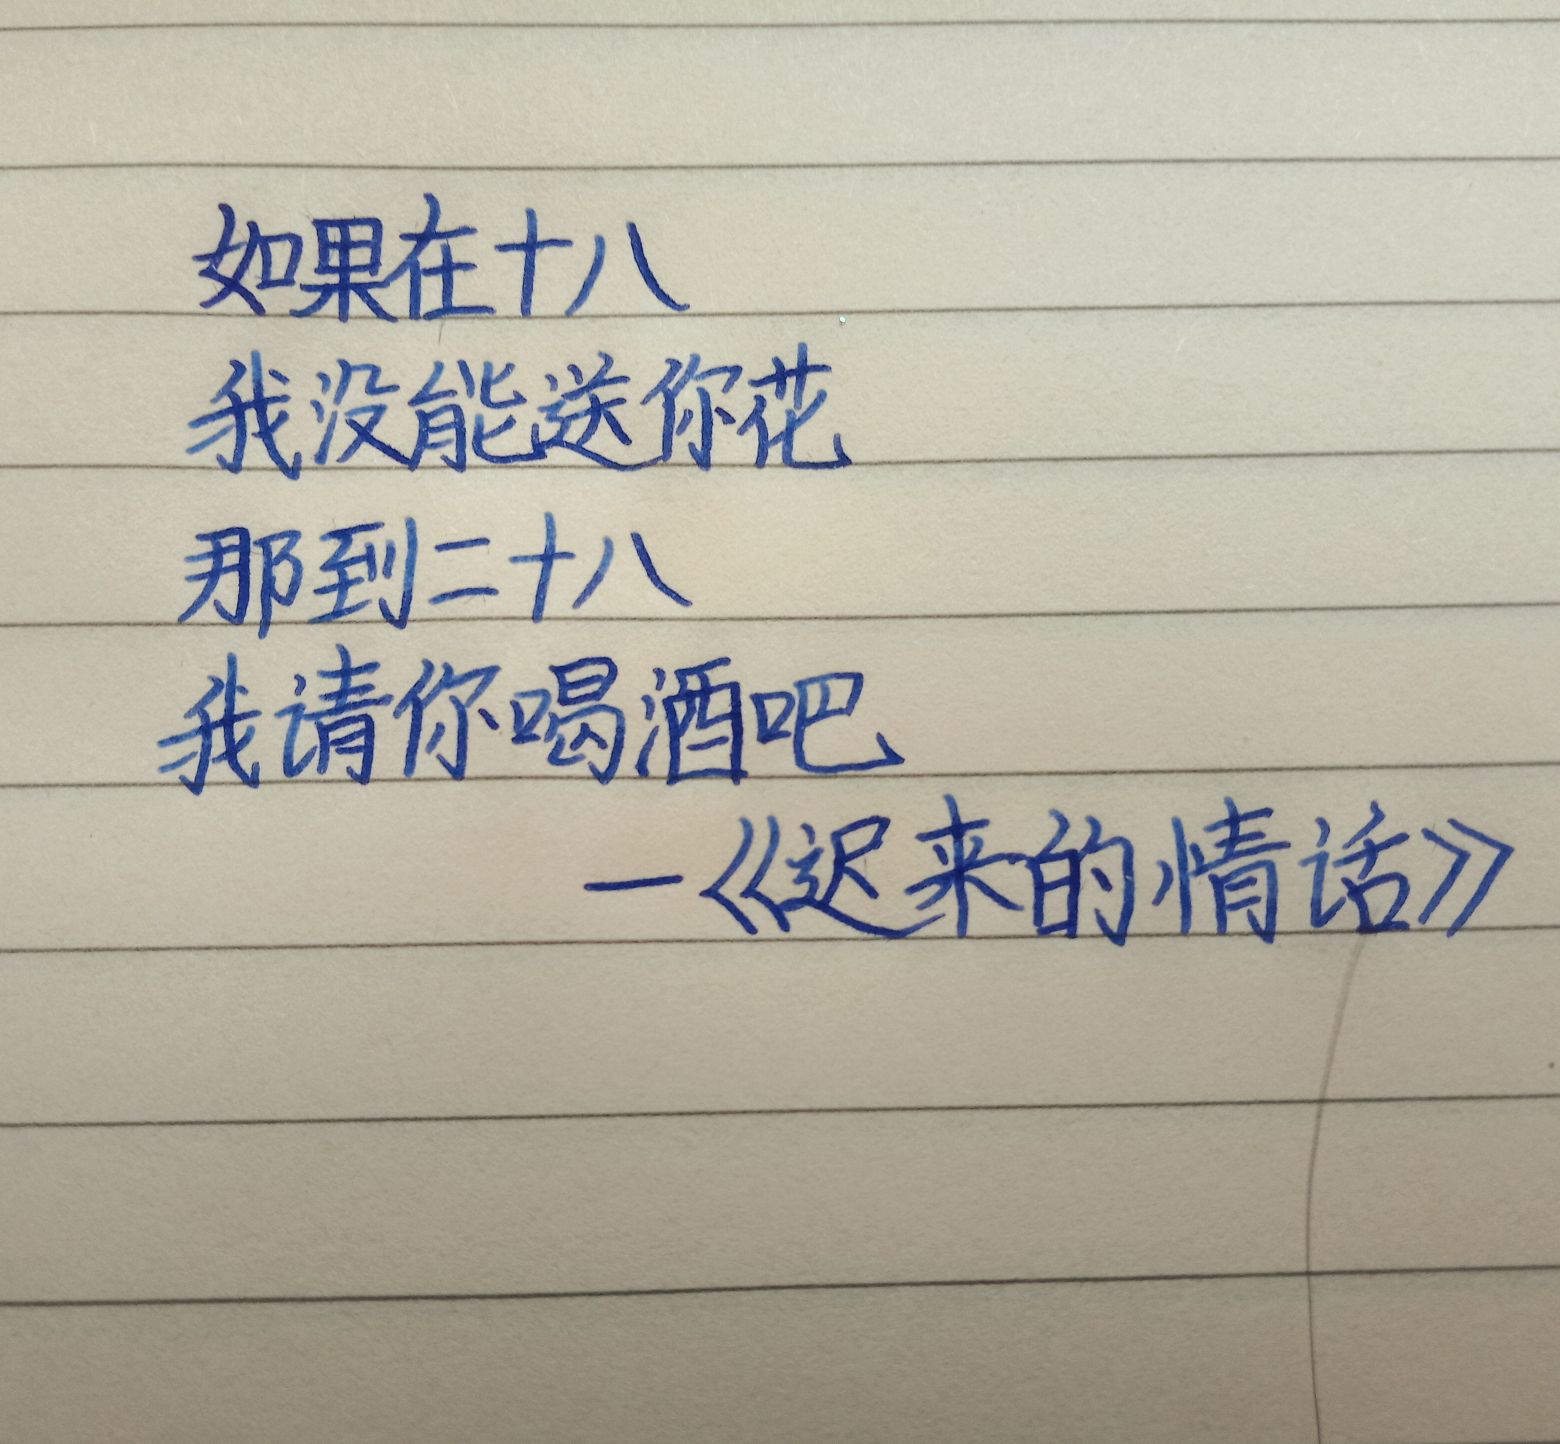 如果在十八
我没能送你花
那到二十八
我请你喝酒吧
—《迟来的情话》